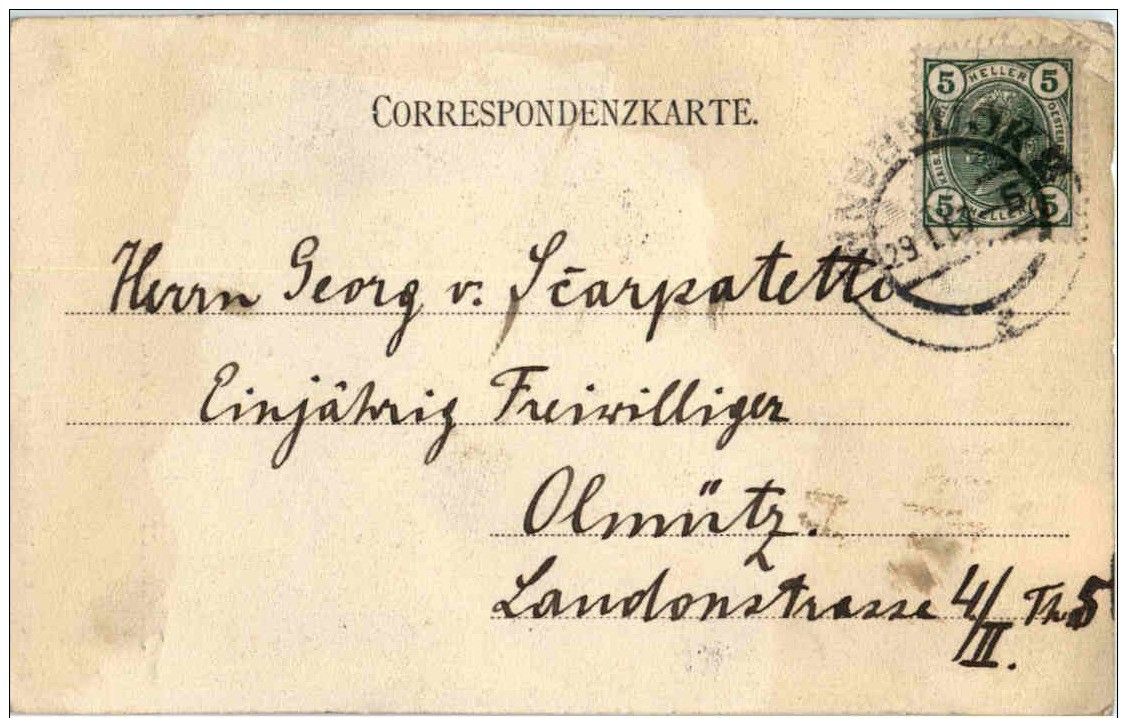 CORRESPONDENZKARTE.
5 HELLER 5
5 HELLER 5
29
Herrn Georg v. Sčarpatetti
Einjährig Freiwilliger
Olmütz.
Laudonstrasse 4/II. Th. 5